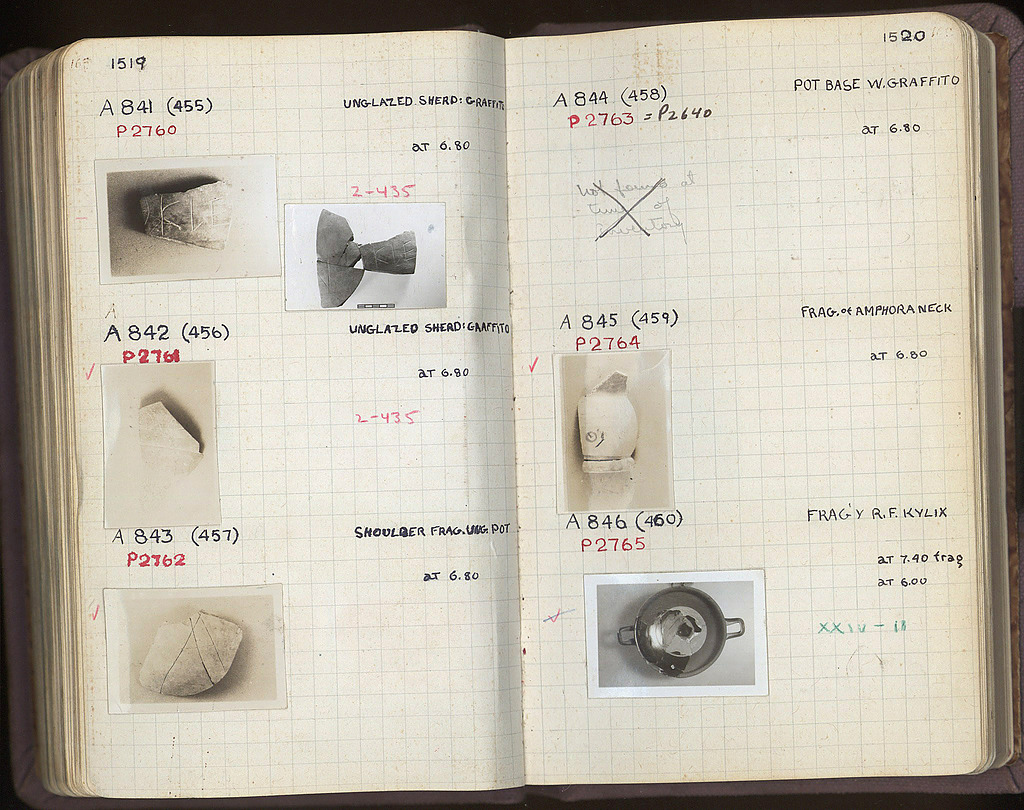 1519
A 841 (455) UNGLAZED SHERD: GRAFFITO
P2760
at 6.80
2-435
A
A 842 (456) UNGLAZED SHERD: GRAFFITO
P2761
at 6.80
2-435
A 843 (457) SHOULDER FRAG. UNG. POT
P2762
at 6.80
1520
A 844 (458) POT BASE W. GRAFFITO
P2763 = P2640
at 6.80
Not found at
time of
inventory
A 845 (459) FRAG. of AMPHORA NECK
P2764
at 6.80
A 846 (460) FRAG'Y R.F. KYLIX
P2765
at 7.40 frag
at 6.00
XXIV - 11